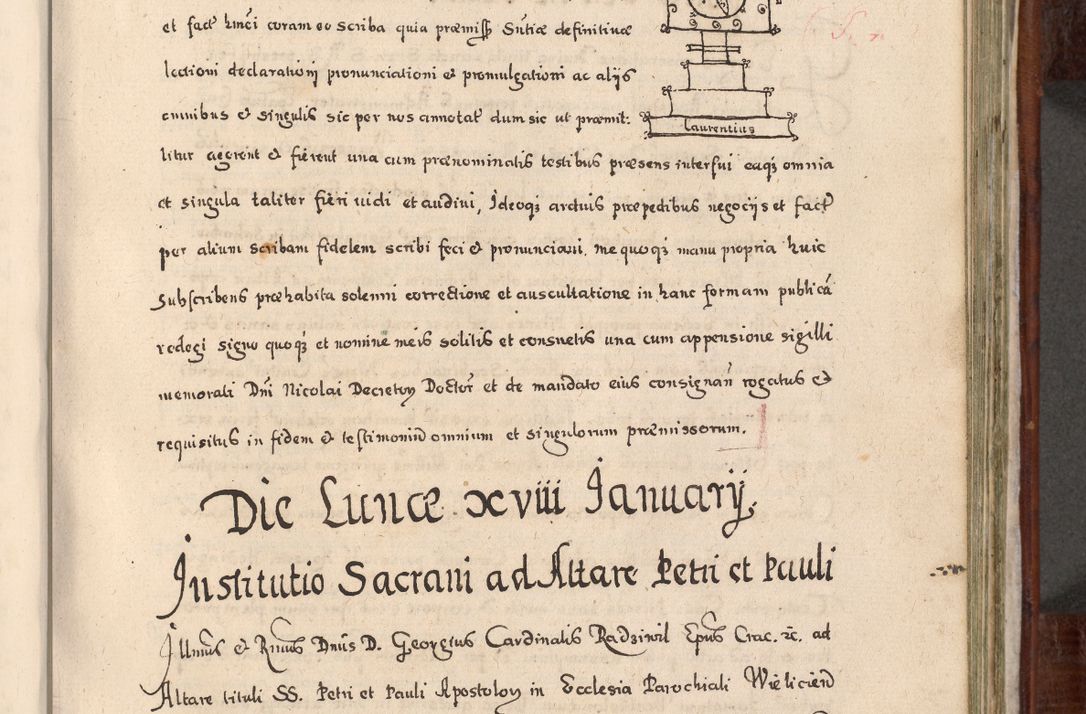 et fact hmći coram eo scriba quia præmiss Sntiæ definitivæ
lectioni declarationj pronunciationi et promulgationi ac alijs
omnibus et singulis sic per nos annotat dum sic ut præmit:
Laurentius
litur agerent et fierent una cum prænominatis testibus præsens interfui eaqз omnia
et singula taliter fieri uidi et audiui, Ideoqз arduis præpedibus negocijs et fact
per alium scribam fidelem scribi feci et pronunciaui, me quoqз manu propria huic
Subscribens præhabita solemni correctione et auscultatione in hanc formam publicā
redegi signo quoqз et nomine meis solitis et consuetis una cum appensione sigilli
memorati Dni Nicolai Decretoꝝ Doctor et de mandato eius consignan rogatus et
requisitus in fidem et testimoniū omnium et singulorum præmissorum.
Die Lunæ xviii Ianuarij.
Institutio Sacrani ad Altare Petri et Pauli
Illmus et Rmus Dnus D. Georgius Cardinalis Radziwil Epus Crac. &c. ad
Altare tituli SS. Petri et Pauli Apostoloꝝ in Ecclesia Parochiali Wielicien